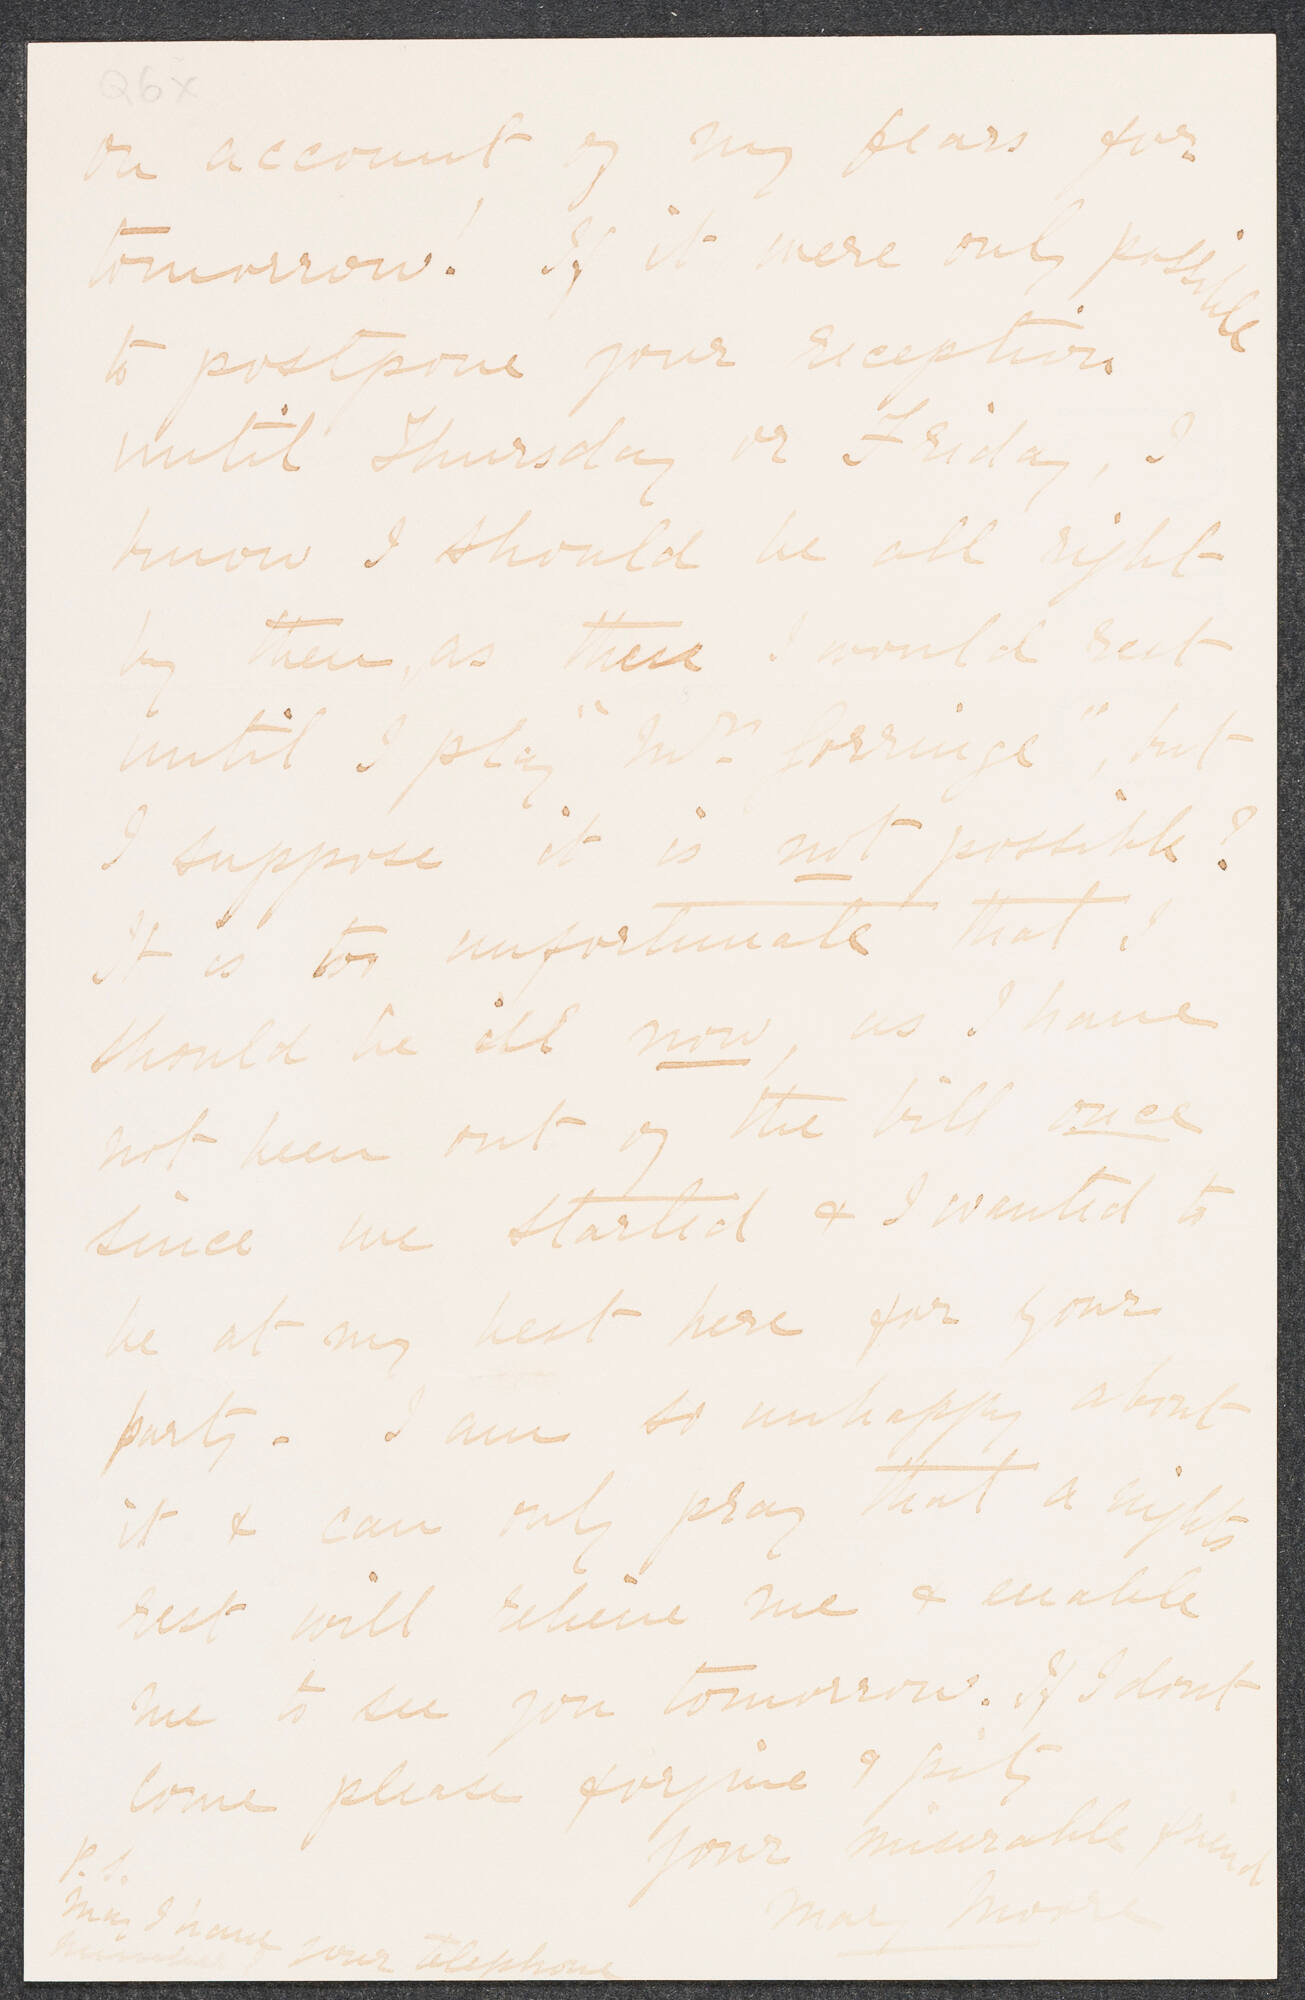 Q6x
on account of my fears for
tomorrow! If it were only possible
to postpone your reception
until Thursday or Friday, I
know I should be all right
by then, as then I would rest
until I play "Mrs. Gorringe", but
I suppose it is not possible?
It is too unfortunate that I
should be ill now, as I have
not been out of the bill once
since we started & I wanted to
be at my best here for your
party - I am so unhappy about
it & can only pray that a nights
rest will relieve me & enable
me to see you tomorrow. If I dont
come please forgive & pity
your miserable friend
Mary Moore
P.S.
May I have
your telephone